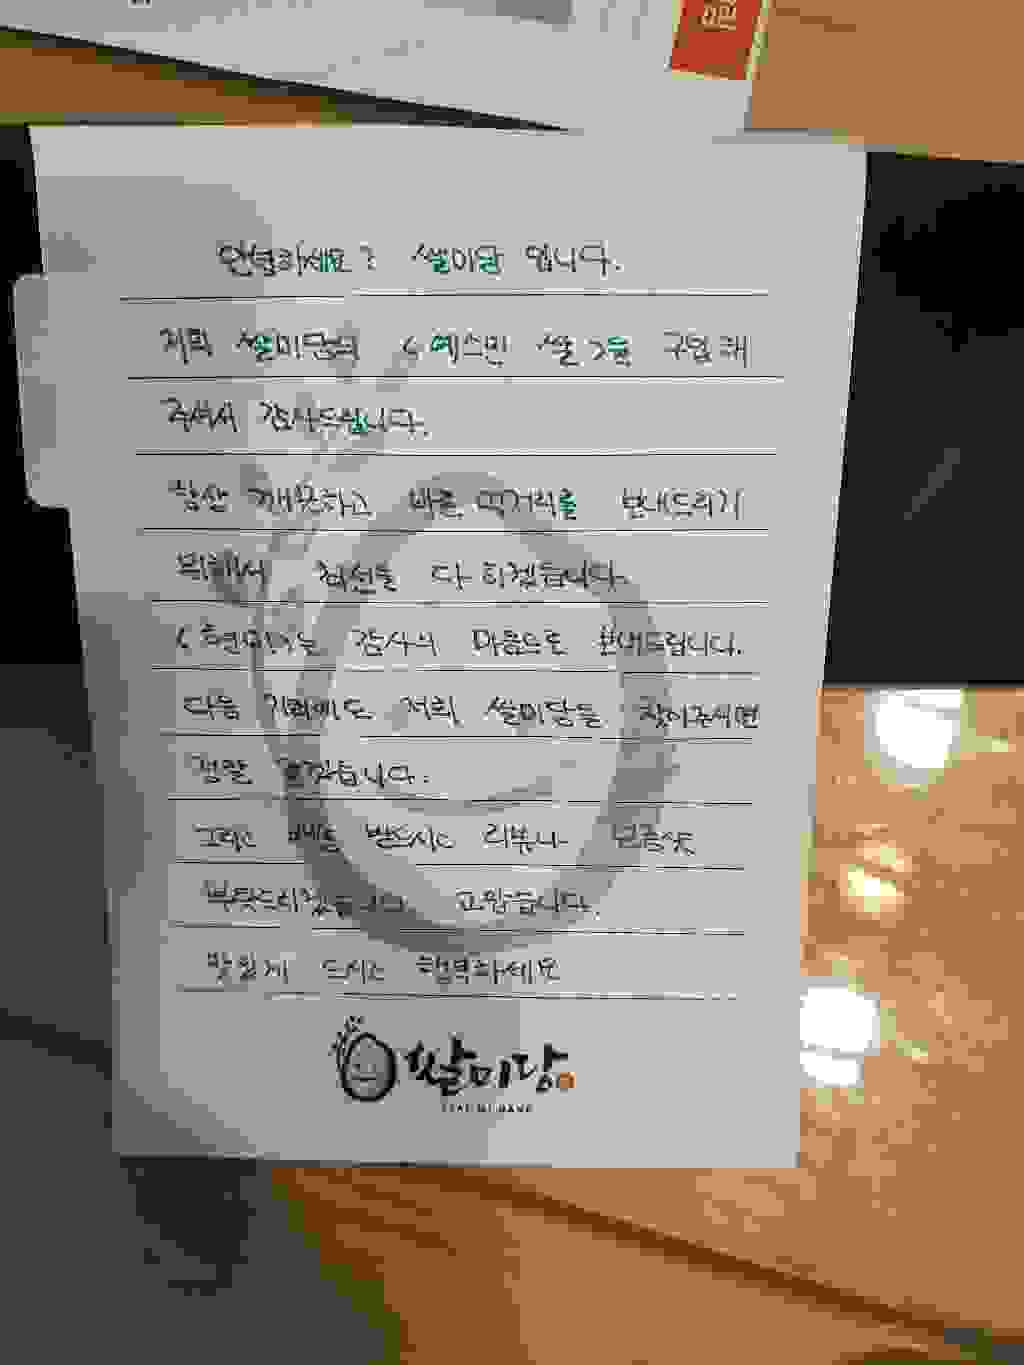 안녕하세요? 쌀미담 입니다.
저희 쌀미담의 <예스민 쌀>을 구입해
주셔서 감사드립니다.
항상 깨끗하고 바른 먹거리를 보내드리기
위해서 최선을 다 하겠습니다.
<현미>는 감사의 마음으로 보내드립니다.
다음 기회에도 저희 쌀미담을 찾아주시면
정말 고맙습니다.
그리고 받드시고 리뷰나 인증샷
부탁드리겠습니다 고맙습니다.
맛있게 드시고 행복하세요
쌀미당